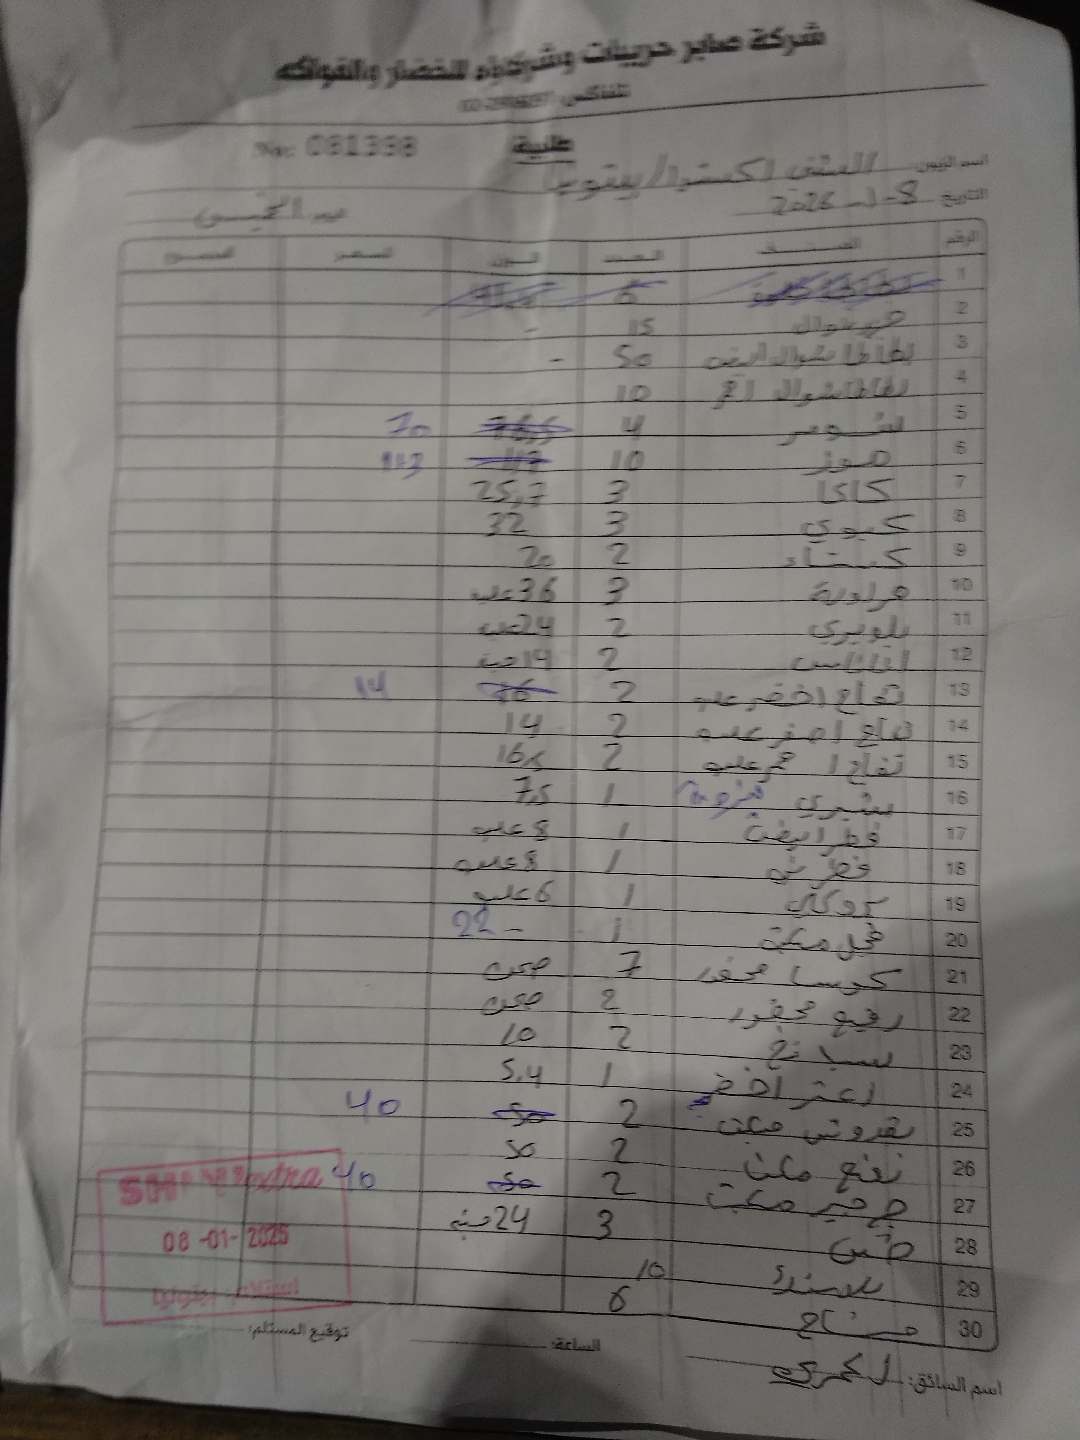 شركة صابر حريبات وشركاؤه للخضار والفواكه
تلفاكس:
طلبية
No: 081338
اسم الزبون: الشني اكسترا / بيتونيا
التاريخ 8-1-2026
الرقم الصنف العدد الوزن السعر المجموع
1 6
2 15 -
3 بطاطا شوال ابيض 50 -
4 بطاطا شوال احمر 10
5 شومر 4 70
6 موز 10 117 113
7 كاكا 3 25,7
8 كيوي 3 32
9 كستناء 2 20
10 فراولة 3 36 علبة
11 بلوبيري 2 24 علبة
12 اناناس 2 14 حبة
13 تفاح اخضر علب 2 16 14
14 تفاح اصفر علب 2 14
15 تفاح احمر علب 2 16,5
16 شيري 1 7,5
17 فطر ابيض 1 8 علب
18 فطر بني 1 8 علب
19 بروكلي 1 6 علب
20 فجل مكتة 1 - 22
21 كوسا محفور 7 صحن
22 رفيع محفور 2 صحن
23 سبانخ 2 10
24 زعتر اخضر 1 5,4
25 بقدونس مكت 2 50 40
26 نعنع مكت 2 50
27 جرجير مكت 2 50 40
28 3 24 حبة
29 10
30 6
SHINI Extra
08-01-2025
استلام بيتونيا
توقيع المستلم:
الساعة:
اسم السائق: